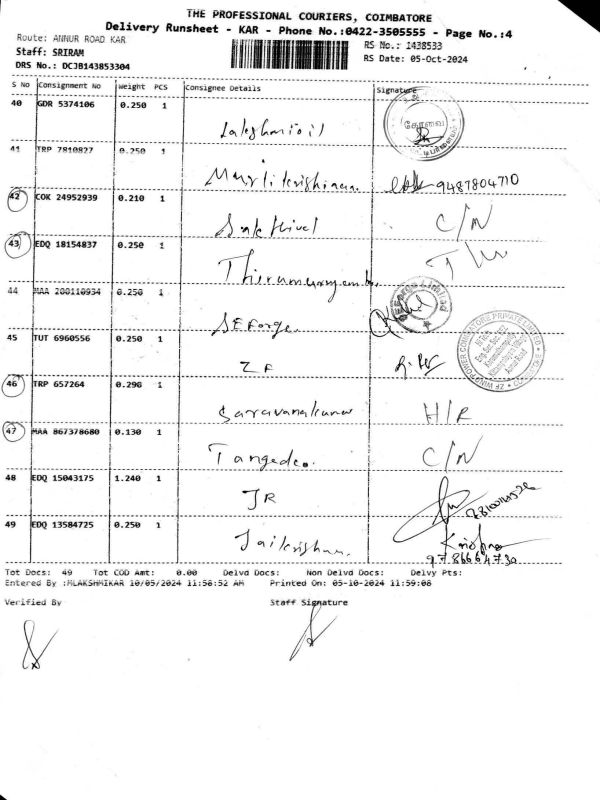 THE PROFESSIONAL COURIERS, COIMBATORE
Delivery Runsheet - KAR - Phone No.:0422-3505555 - Page No.:4
Route: ANNUR ROAD KAR RS No.: 1438533
Staff: SRIRAM RS Date: 05-Oct-2024
DRS No.: DCJB143853304
S No Consignment No Weight PCS Consignee Details Signature
40 GDR 5374106 0.250 1
கோவை
41 TRP 7810827 0.250 1
9487804710
42 COK 24952939 0.210 1 Sakthivel C/N
43 EDQ 18154837 0.250 1
44 MAA 200110934 0.250 1 SEForge
45 TUT 6960556 0.250 1 ZF
ZF WIND POWER COIMBATORE PRIVATE LIMITED
46 TRP 657264 0.290 1 Saravanakumar H/R
47 MAA 867378680 0.130 1 Tangedco. C/N
48 EDQ 15043175 1.240 1 JR
49 EDQ 13584725 0.250 1 Jaikrishnan. Krishna
9786664730
Tot Docs: 49 Tot COD Amt: 0.00 Delvd Docs: Non Delvd Docs: Delvy Pts:
Entered By :MLAKSHMIKAR 10/05/2024 11:58:52 AM Printed On: 05-10-2024 11:59:08
Verified By Staff Signature